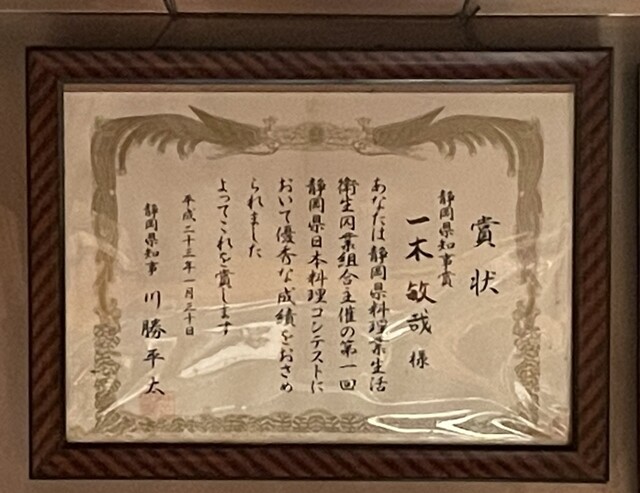 賞状
静岡県知事賞
一木敏哉様
あなたは静岡県料理業生活
衛生同業組合主催の第一回
静岡県日本料理コンテストに
おいて優秀な成績をおさめ
られました
よってこれを賞します
平成二十三年一月三十日
静岡県知事 川勝平太